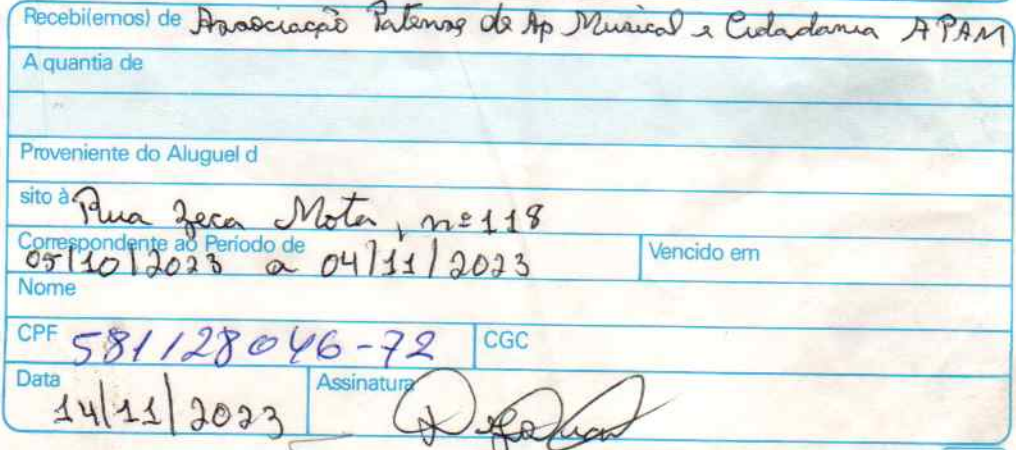 Recebi(emos) de Associação Patense de Ap Musical e Cidadania APAM
A quantia de
Proveniente do Aluguel d
sito à Rua Zeca Mota, nº 118
Correspondente ao Período de 05/10/2023 a 04/11/2023 Vencido em
Nome
CPF 581128046-72 CGC
Data 14/11/2023 Assinatura